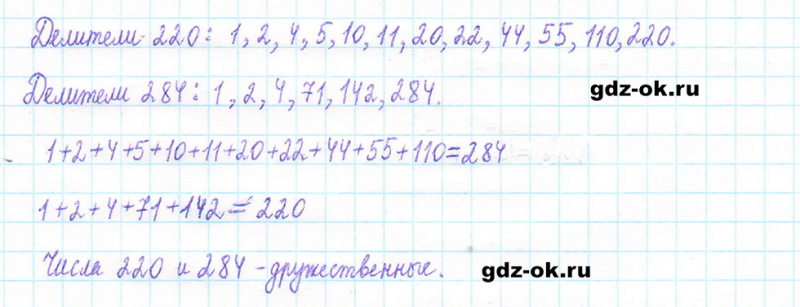 Делители 220: 1, 2, 4, 5, 10, 11, 20, 22, 44, 55, 110, 220.
Делители 284: 1, 2, 4, 71, 142, 284.
gdz-ok.ru
1+2+4+5+10+11+20+22+44+55+110=284
1+2+4+71+142=220
Числа 220 и 284 - дружественные.
gdz-ok.ru